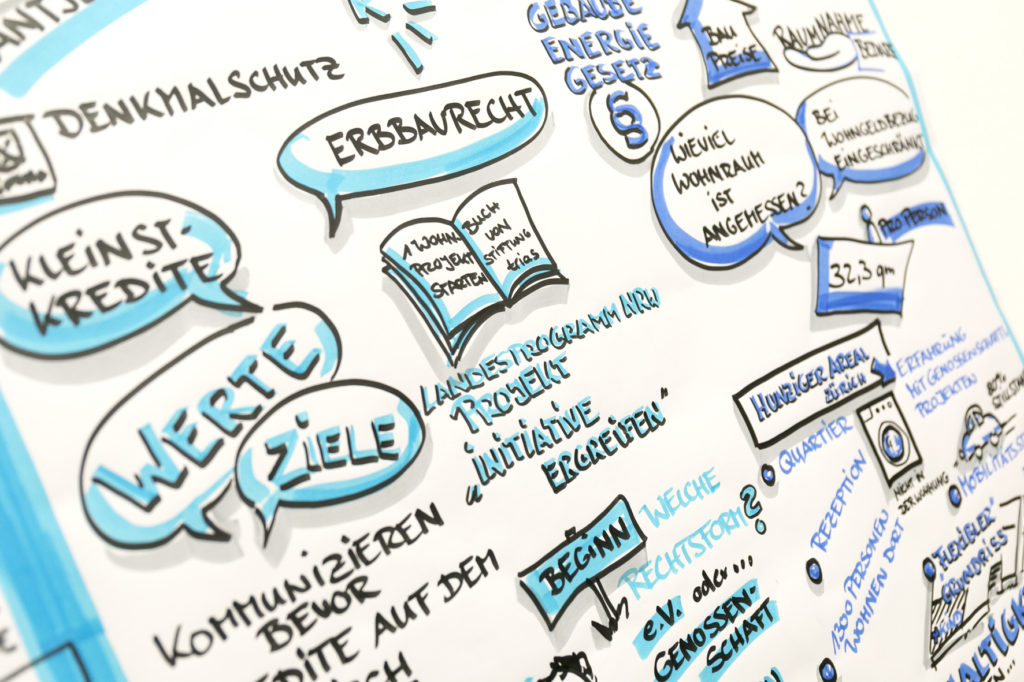 DENKMALSCHUTZ
ERBBAURECHT
GEBÄUDE
ENERGIE
GESETZ
§
BAU
PREISE
KLEINST-
KREDITE
1 WOHN
PROJEKT
STARTEN
BUCH
VON
STIFTUNG
trias
WIEVIEL
WOHNRAUM
IST
ANGEMESSEN?
BEI
WOHNGELDBEZUG
EINGESCHRÄNKT
PRO PERSON
32,3 qm
WERTE
ZIELE
LANDESPROGRAMM NRW
PROJEKT
"INITIATIVE
ERGREIFEN"
HUNZIGER AREAL
ZÜRICH
ERFAHRUNG
MIT GENOSSENSCHAFTL
PROJEKTEN
QUARTIER
NICHT IN
DER WOHNUNG
REZEPTION
1300 PERSONEN
WOHNEN DORT
"FLEXIBLER"
GRUNDRISS
KOMMUNIZIEREN
BEVOR
EDITE AUF DEM
BEGINN
WELCHE
RECHTSFORM?
e.V. oder...
GENOSSEN-
SCHAFT